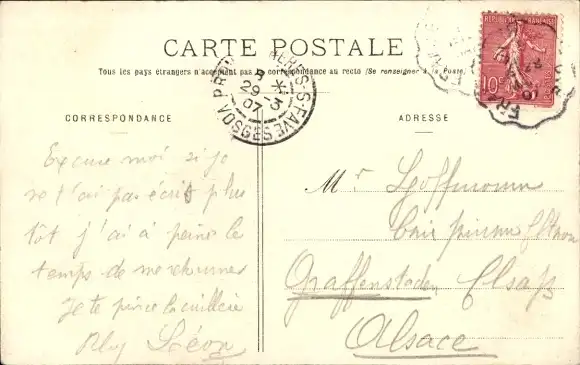 CARTE POSTALE
Tous les pays étrangers n'acceptent pas la correspondance au recto (Se renseigner à la Poste)
RÉPUBLIQUE FRANÇAISE
10c
29 -5
07
VOSGES
CORRESPONDANCE
ADRESSE
Excuse moi si je
ne t'ai pas écrit plus
tôt j'ai à peine le
temps de me retourner
Je te pince la cuillère
Léon
Mr Hoffmann
Graffenstaden Elsaß
Alsace